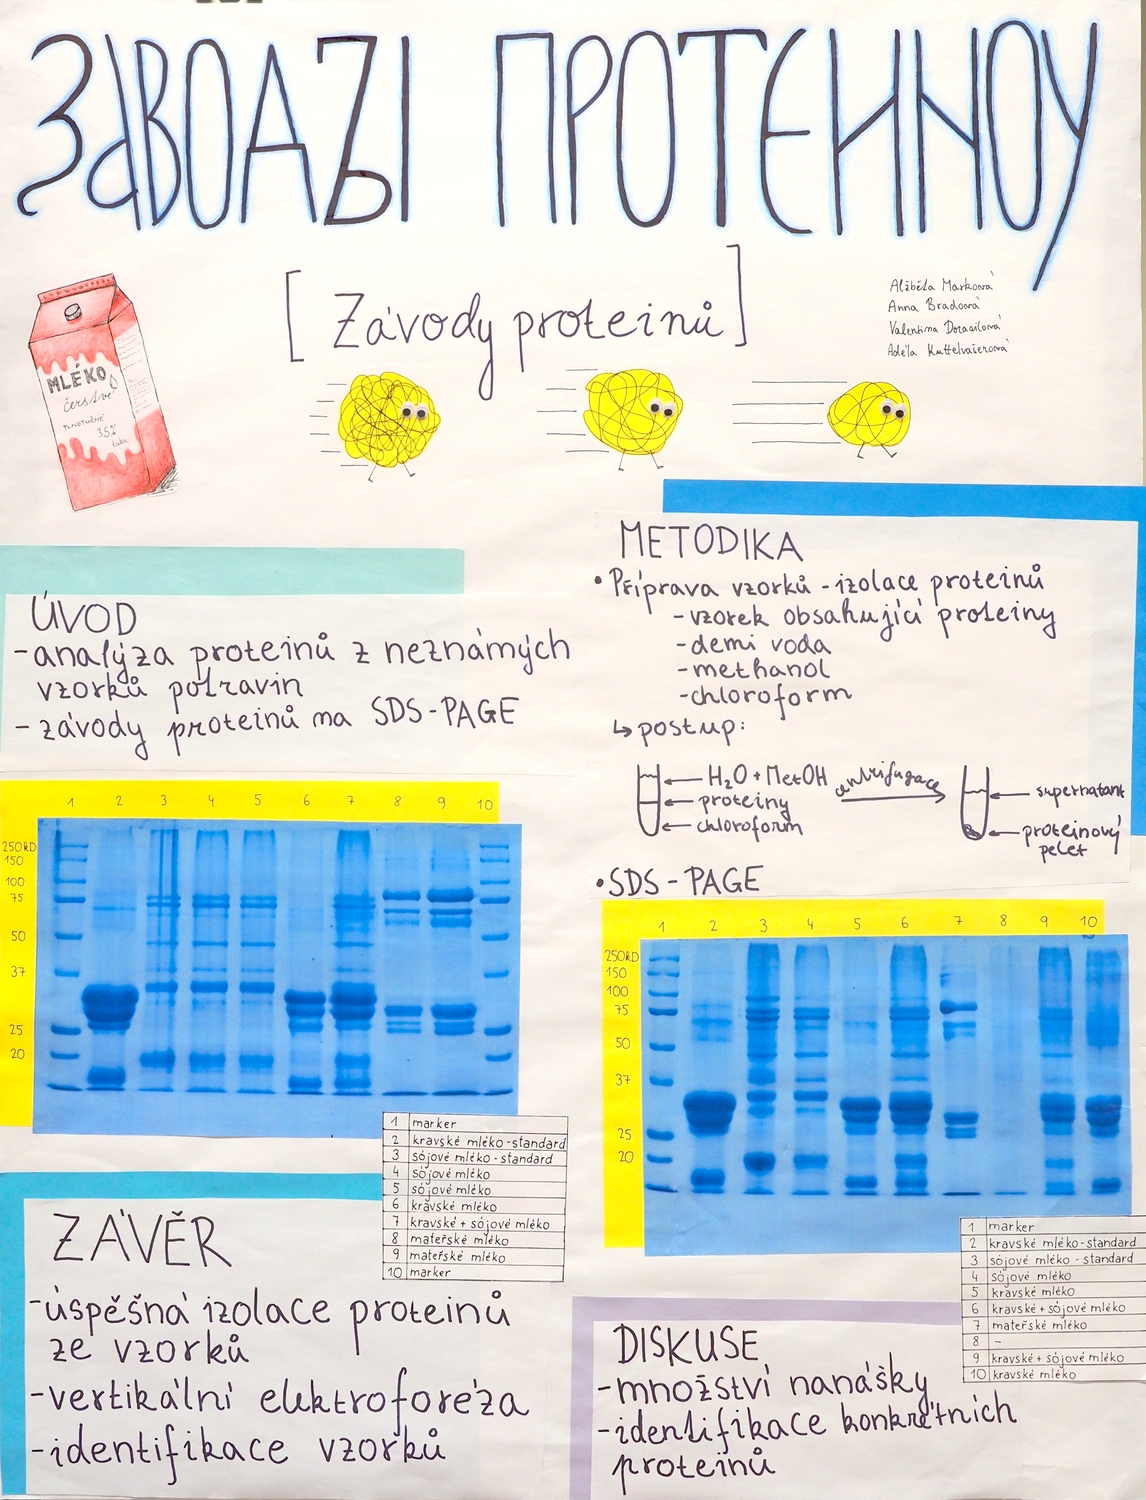 ЗАВОДЪІ ПРОТЕИНОУ
[Závody proteinů]
Alžběta Marková
Anna Bradová
Valentina Doračilová
Adéla Kuttelvašerová
MLÉKO
čerstvé
PLNOTUČNÉ
3,5%
tuku
ÚVOD
-analýza proteinů z neznámých
vzorků potravin
- závody proteinů na SDS-PAGE
METODIKA
• Příprava vzorků - izolace proteinů
-vzorek obsahující proteiny
-demi voda
-methanol
-chloroform
↳ postup:
H₂O + MetOH
proteiny
chloroform
centrifugace
supernatant
proteinový
pelet
• SDS - PAGE
1 2 3 4 5 6 7 8 9 10
250kD
150
100
75
50
37
25
20
1 marker
2 kravské mléko-standard
3 sójové mléko - standard
4 sójové mléko
5 sójové mléko
6 kravské mléko
7 kravské + sójové mléko
8 mateřské mléko
9 mateřské mléko
10 marker
1 2 3 4 5 6 7 8 9 10
250kD
150
100
75
50
37
25
20
1 marker
2 kravské mléko-standard
3 sójové mléko - standard
4 sójové mléko
5 kravské mléko
6 kravské + sójové mléko
7 mateřské mléko
8 -
9 kravské + sójové mléko
10 kravské mléko
ZÁVĚR
-úspěšná izolace proteinů
ze vzorků
-vertikální elektroforéza
-identifikace vzorků
DISKUSE
-množství nanášky
-identifikace konkrétních
proteinů